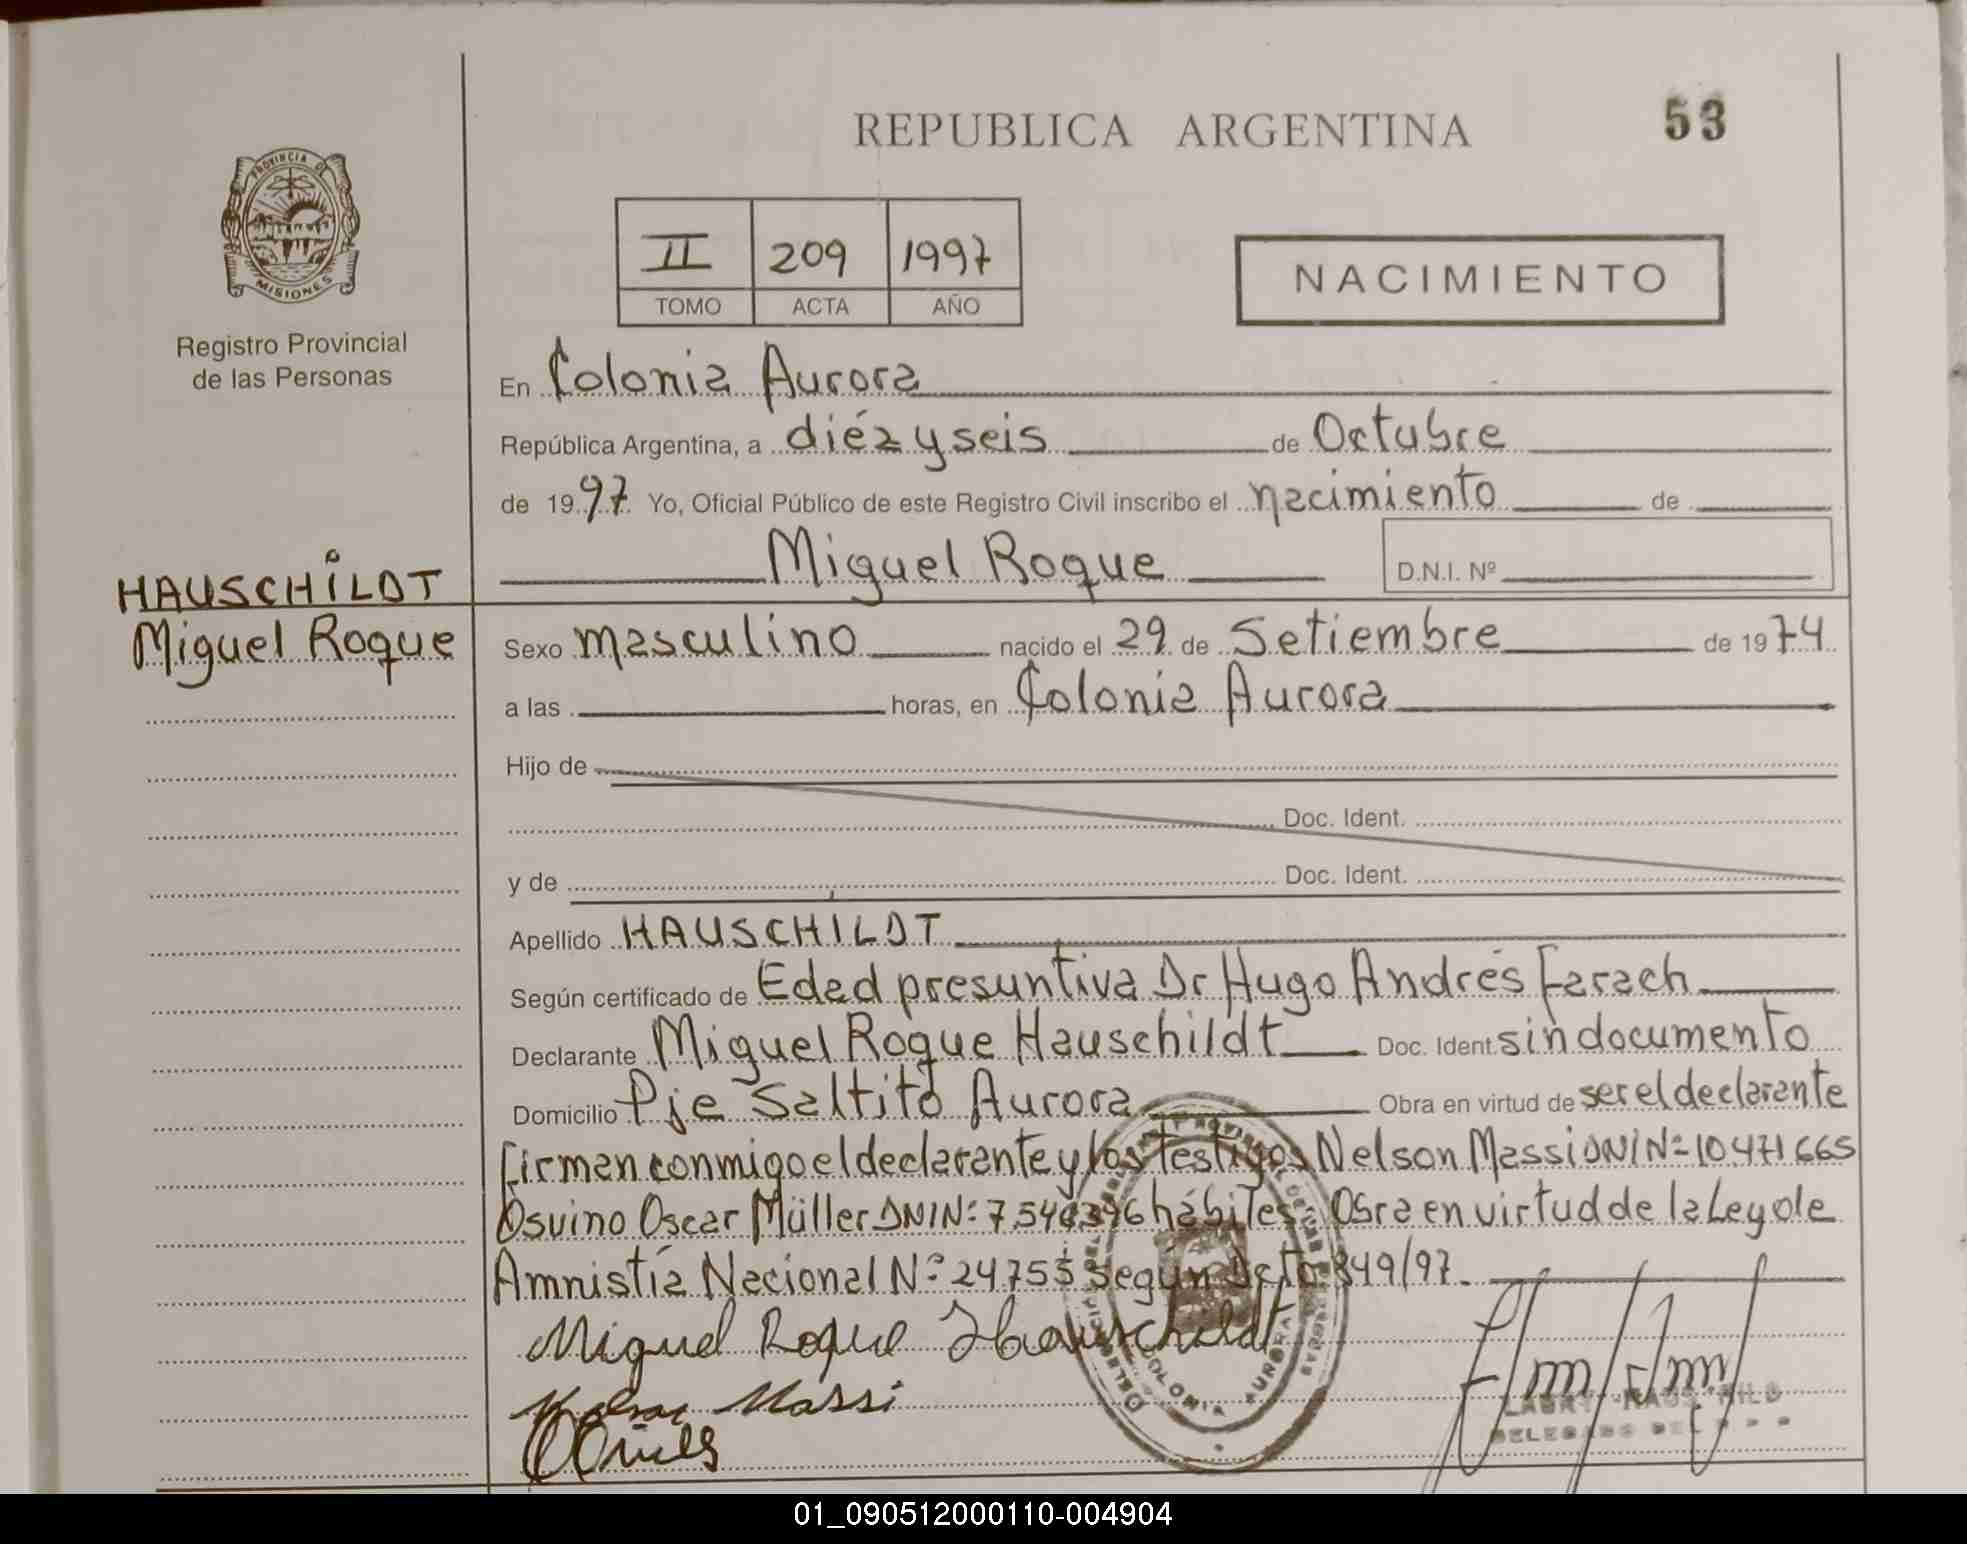 REPUBLICA ARGENTINA
53
PROVINCIA DE
MISIONES
Registro Provincial
de las Personas
II 209 1997
TOMO ACTA AÑO
NACIMIENTO
En Colonia Aurora
República Argentina, a diéz y seis de Octubre
de 1997 Yo, Oficial Público de este Registro Civil inscribo el nacimiento de
Miguel Roque D.N.I. Nº
HAUSCHILDT
Miguel Roque
Sexo masculino nacido el 29 de Setiembre de 1974
a las horas, en Colonia Aurora
Hijo de
Doc. Ident.
y de Doc. Ident.
Apellido HAUSCHILDT
Según certificado de Edad presuntiva Dr Hugo Andrés Farach
Declarante Miguel Roque Hauschildt Doc. Ident. sin documento
Domicilio Pje Saltito Aurora Obra en virtud de ser el declarante
firman conmigo el declarante y los testigos Nelson Massi DNI Nº 10.471.665
Osvino Oscar Müller DNI Nº 7.546.396 hábiles. Obra en virtud de la Ley de
Amnistía Nacional Nº 24.755 según Dcto 849/97.
Miguel Roque Hauschildt
Nelson Massi
COLONIA AURORA
01_090512000110-004904